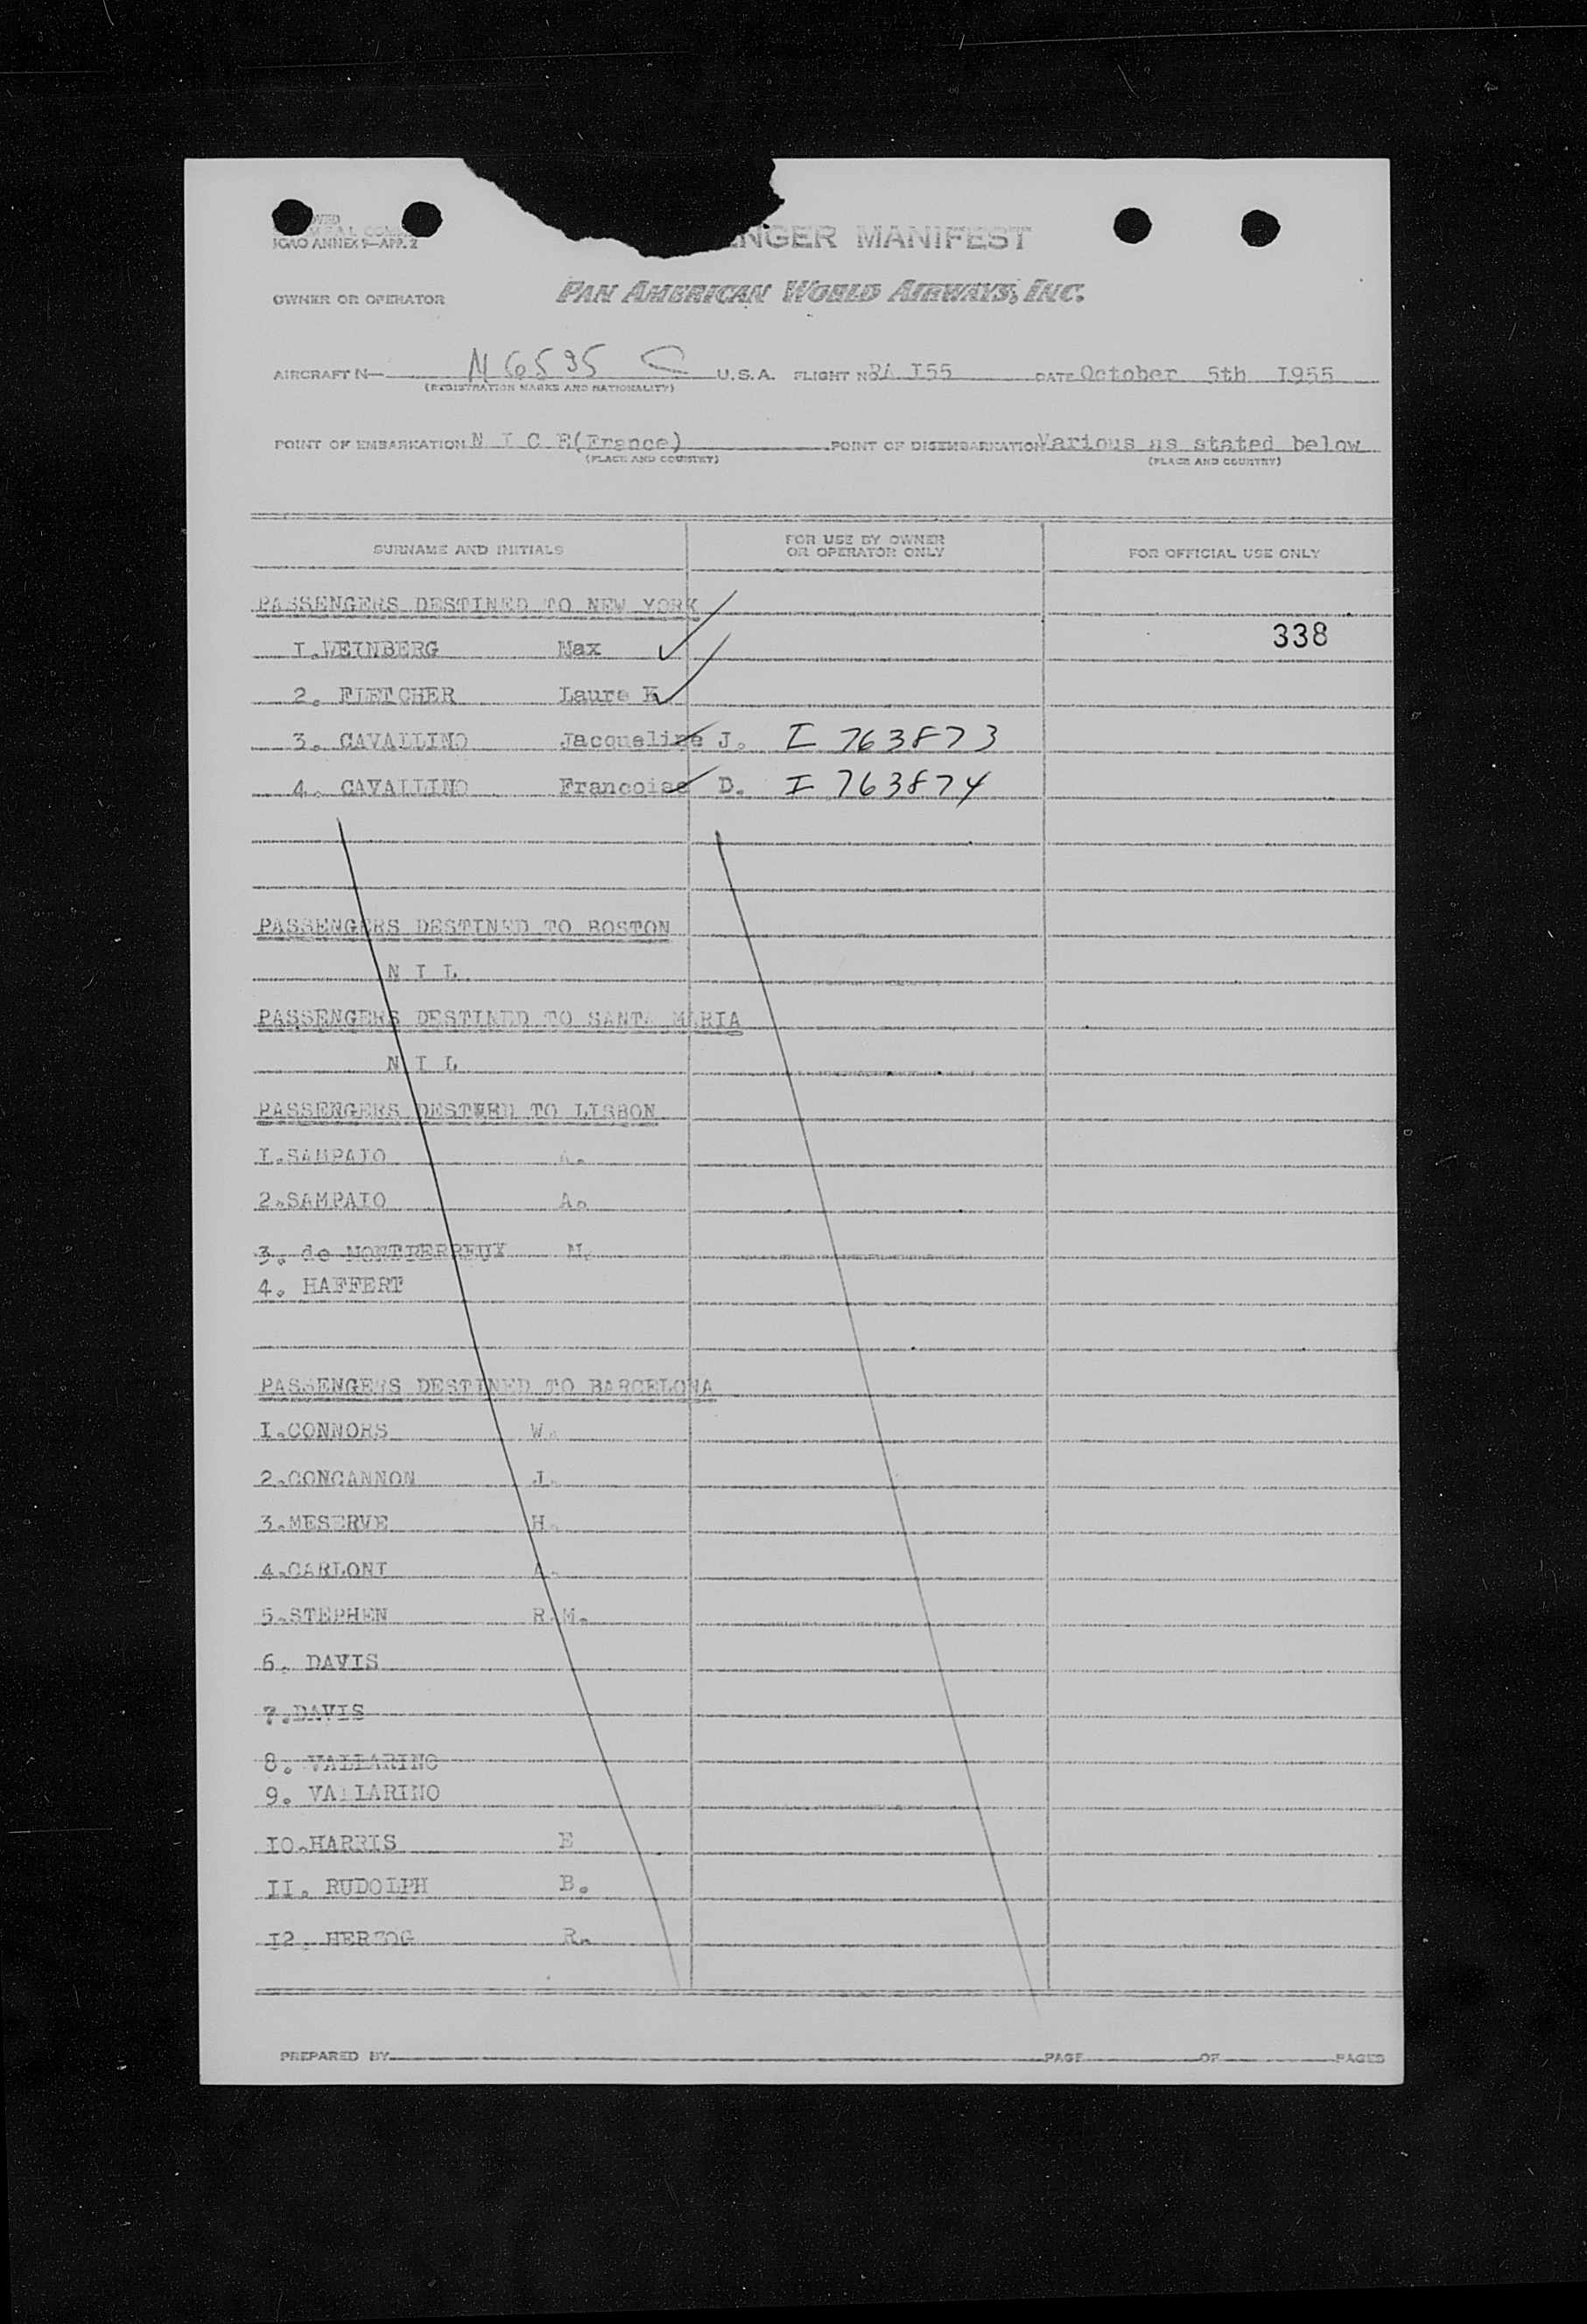 ICAO ANNEX 9—APP. 2
ENGER MANIFEST
OWNER OR OPERATOR PAN AMERICAN WORLD AIRWAYS, INC.
AIRCRAFT N— N 6535 C U.S.A. FLIGHT NO PA I55 DATE October 5th I955
(REGISTRATION MARKS AND NATIONALITY)
POINT OF EMBARKATION N I C E(France) POINT OF DISEMBARKATION Various as stated below
(PLACE AND COUNTRY) (PLACE AND COUNTRY)
SURNAME AND INITIALS FOR USE BY OWNER OR OPERATOR ONLY FOR OFFICIAL USE ONLY
PASSENGERS DESTINED TO NEW YORK
338
I.WEINBERG Max
2. FLETCHER Laura
3. CAVALLINO Jacqueline J. I 763873
4. CAVALLINO Francoise D. I 763874
PASSENGERS DESTINED TO BOSTON
N I L
PASSENGERS DESTINED TO SANTA MARIA
N I L
PASSENGERS DESTINED TO LISBON
I.SAMPAIO A.
2.SAMPAIO A.
3. de M.
4. HAFFERT
PASSENGERS DESTINED TO BARCELONA
I.CONNORS W.
2.CONCANNON J.
3.MESERVE H.
4.CARLONI A.
5.STEPHEN R.M.
6. DAVIS
7.DAVIS
8. VALLARINO
9. VALLARINO
IO.HARRIS E
II. RUDOLPH B.
I2. HERZOG R.
PREPARED BY PAGE OF PAGES